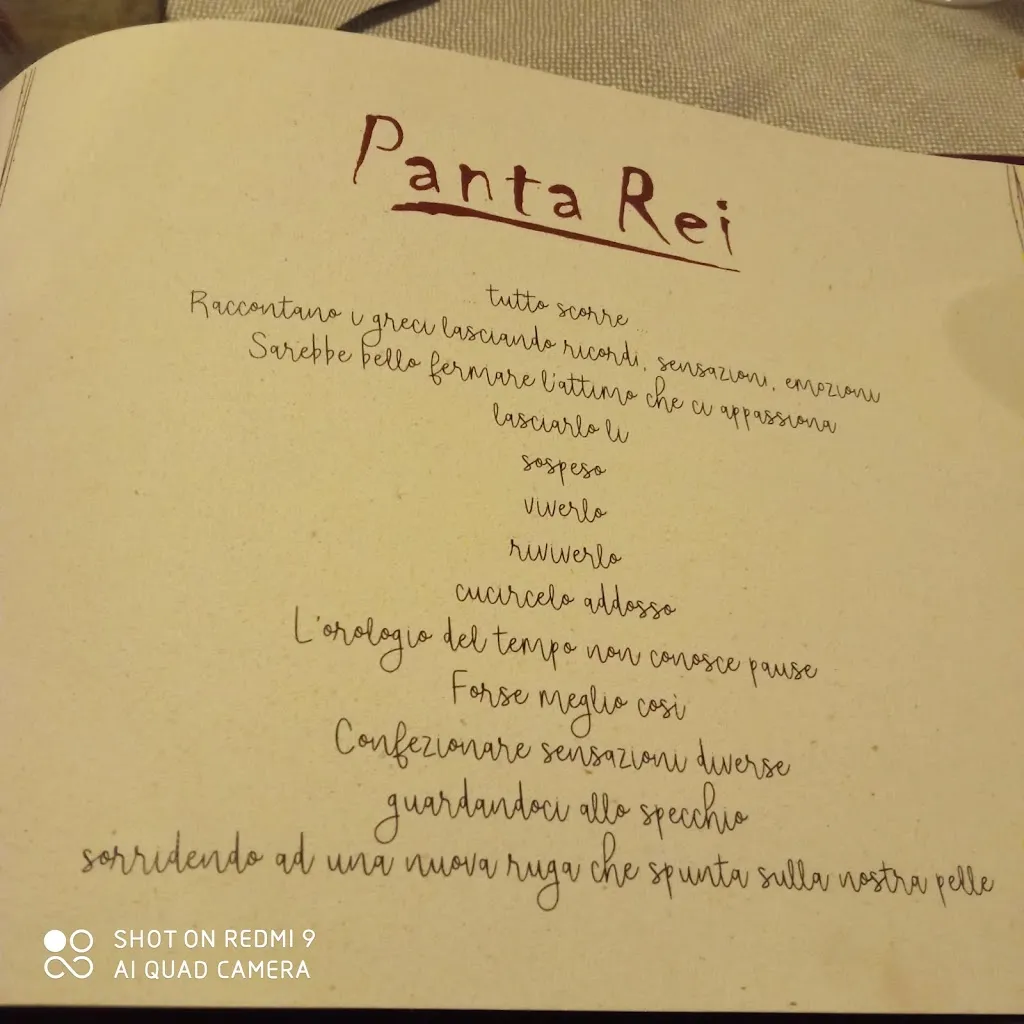 Panta Rei
tutto scorre...
Raccontano i greci lasciando ricordi, sensazioni, emozioni
Sarebbe bello fermare l'attimo che ci appassiona
lasciarlo lì
sospeso
viverlo
riviverlo
cucircelo addosso
L'orologio del tempo non conosce pause
Forse meglio così
Confezionare sensazioni diverse
guardandoci allo specchio
sorridendo ad una nuova ruga che spunta sulla nostra pelle
SHOT ON REDMI 9
AI QUAD CAMERA